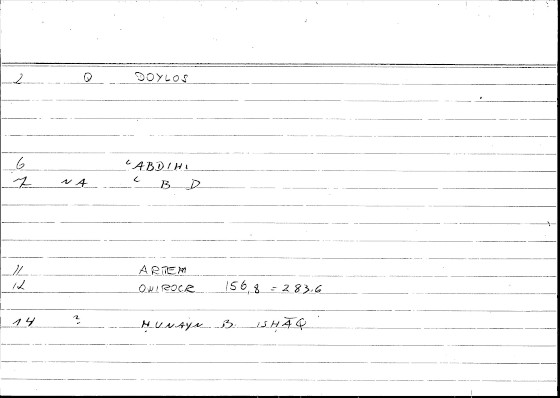 2 Q DOYLOS
6 ʿABDIHI
7 NA ʿ B D
11 ARTEM
12 ONIROCR 156,8 = 283.6
14 ? ḤUNAYN B. ISḤĀQ